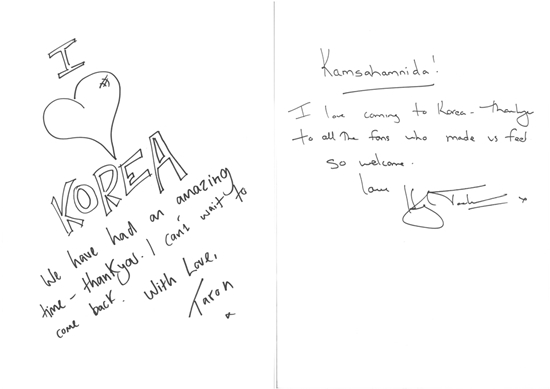 I
KOREA
We have had an amazing
time - thankyou. I can't wait to
come back. With Love,
Taron
x
Kamsahamnida!
I love coming to Korea - thankyou
to all the fans who made us feel
so welcome.
Love
x